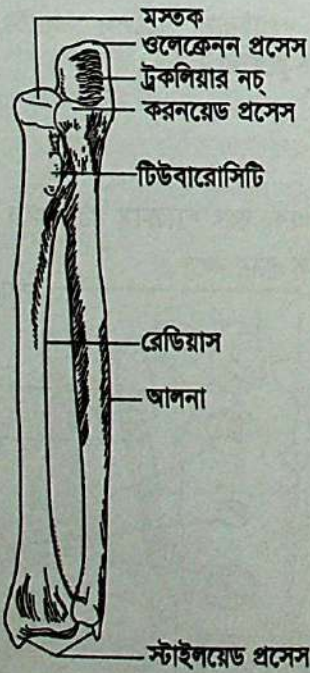 মস্তক
ওলেক্রেনন প্রসেস
ট্রকলিয়ার নচ্
করনয়েড প্রসেস
টিউবারোসিটি
রেডিয়াস
আলনা
স্টাইলয়েড প্রসেস